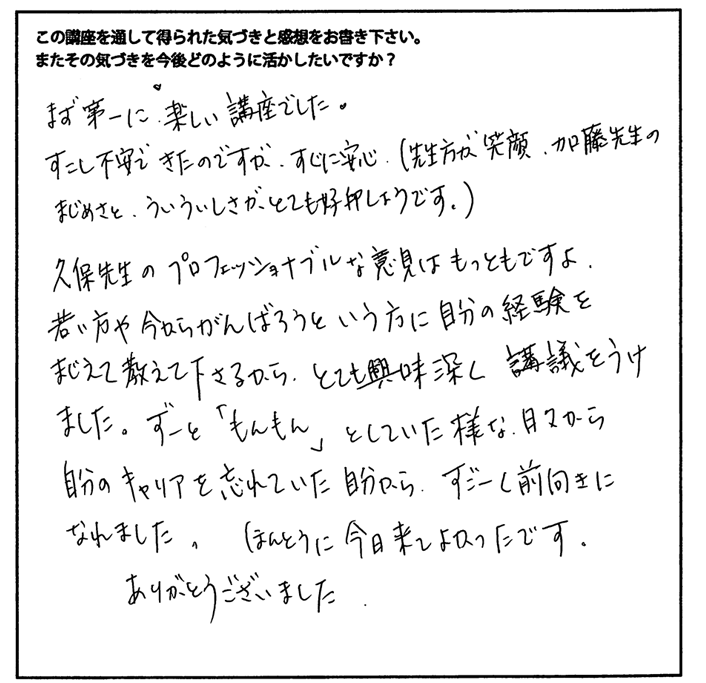 この講座を通して得られた気づきと感想をお書き下さい。
またその気づきを今後どのように活かしたいですか？
まず第一に、楽しい講座でした。
すこし不安できたのですが、すぐに安心、(先生方が笑顔、加藤先生の
まじめさと、ういういしさが、とても好印しょうです。)
久保先生のプロフェッショナブルな意見はもっともですよ、
若い方や今からがんばろうという方に自分の経験を
まじえて教えて下さるから、とても興味深く講議をうけ
ました。ずーと「もんもん」としていた様な、日々から
自分のキャリアを忘れていた自分から、すごーく前向きに
なれました。ほんとうに今日来てよかったです。
ありがとうございました.